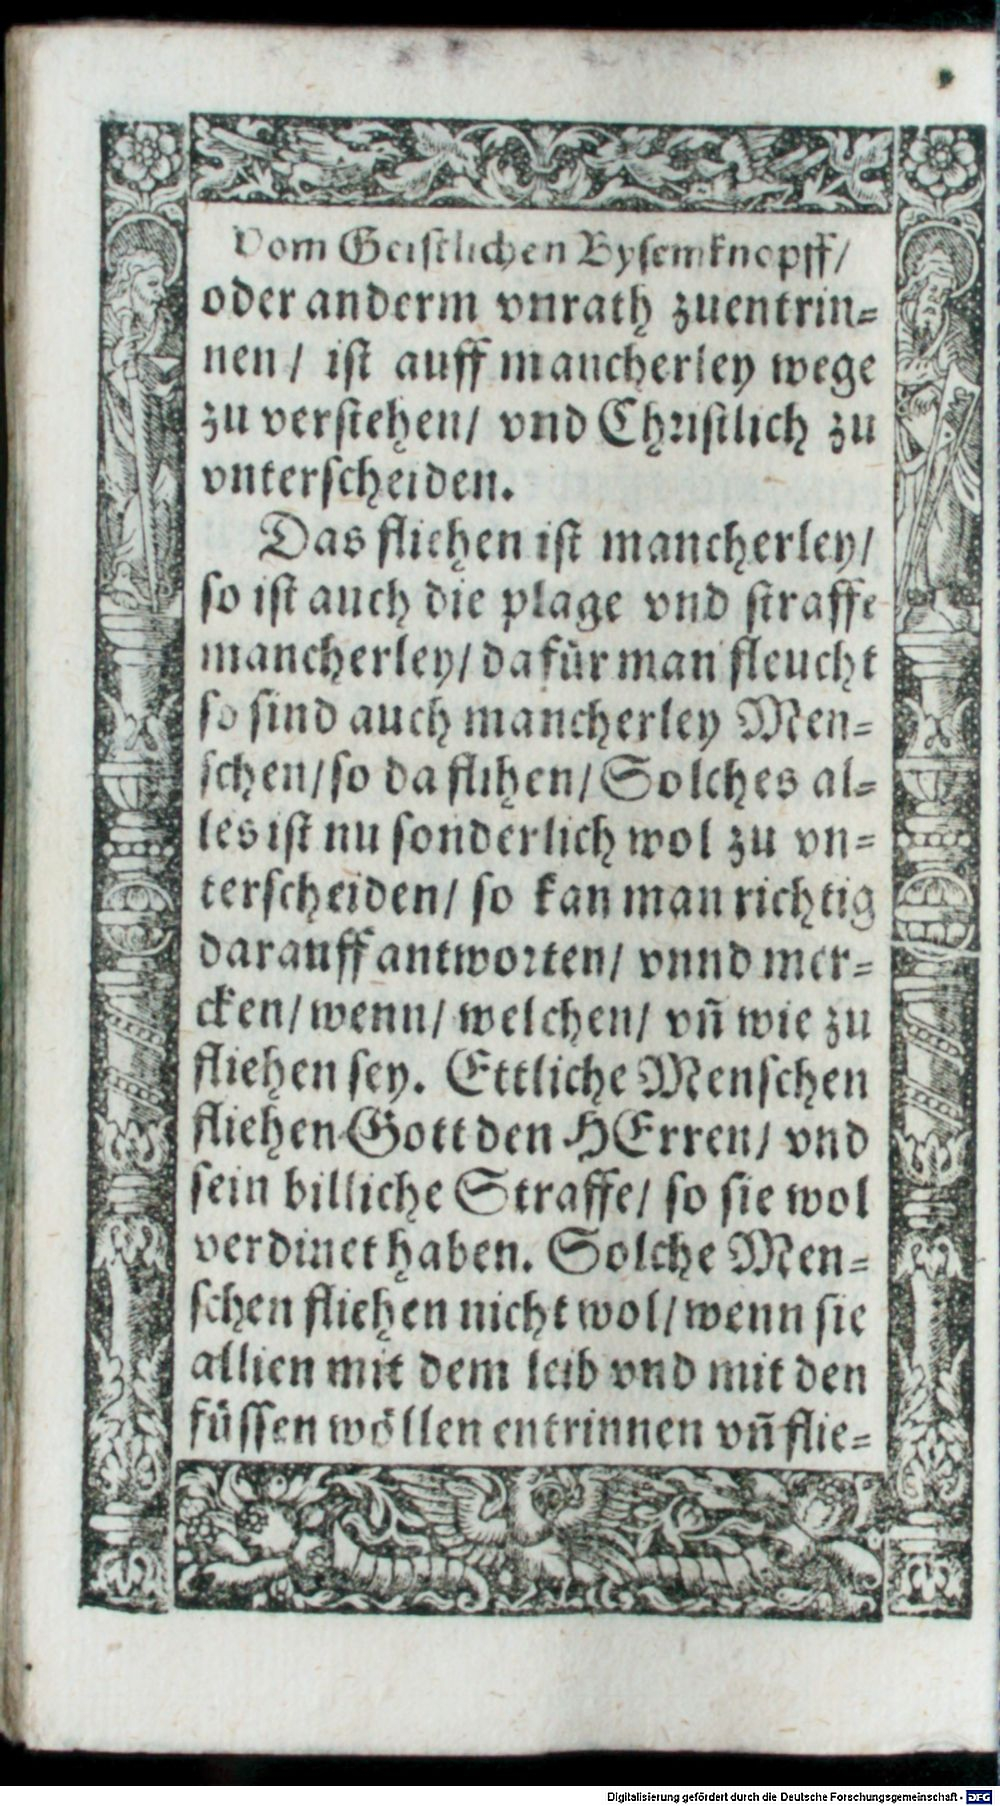 Vom Geistlichen Bysemknopff/
oder anderm vnrath zuentrin=
nen/ ist auff mancherley wege
zu verstehen/ vnd Christlich zu
vnterscheiden.
Das fliehen ist mancherley/
so ist auch die plage vnd straffe
mancherley/ dafür man fleucht
so sind auch mancherley Men=
schen/ so da flihen/ Solches al=
les ist nu sonderlich wol zu vn=
terscheiden/ so kan man richtig
darauff antworten/ vnnd mer=
cken/ wenn/ welchen/ vñ wie zu
fliehen sey. Ettliche Menschen
fliehen Gott den HErren/ vnd
sein billiche Straffe/ so sie wol
verdinet haben. Solche Men=
schen fliehen nicht wol/ wenn sie
allien mit dem leib vnd mit den
füssen wöllen entrinnen vñ flie=
Digitalisierung gefördert durch die Deutsche Forschungsgemeinschaft - DFG